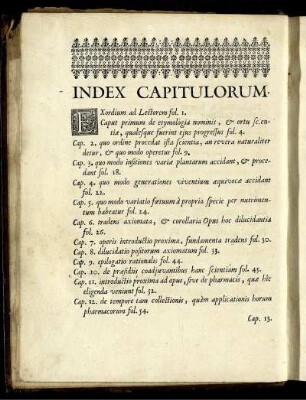 INDEX CAPITULORUM.
EXordium ad Lectorem fol. 1.
Caput primum de etymologia nominis, & ortu scientia, qualesque fuerint ejus progressus fol. 4.
Cap. 2. quo ordine procedat ista scientia, an revera naturaliter
detur, & quo modo operetur fol. 9.
Cap. 3. quo modo insitiones varia plantarum accidant, & procedant fol. 18.
Cap. 4. quo modo generationes viventium aquivoca accidant
fol. 22.
Cap. 5. quo modo variatio fœtuum à propria specie per nutrimentum habeatur fol. 24.
Cap. 6. tradens axiomata, & corollaria Opus hoc dilucidantia
fol. 26.
Cap. 7. operis introductio proxima, fundamenta tradens fol. 30.
Cap. 8. dilucidatio positorum axiomatum fol. 33.
Cap. 9. epilogatio rationalis fol. 44.
Cap. 10. de præsidiis coadjuvantibus hanc scientiam fol. 45.
Cap. 11. introductio proxima ad opus, sive de pharmacis, qua hic
eligenda veniunt fol. 52.
Cap. 12. de tempore tam collectionis, quàm applicationis horum
pharmacorum fol. 54.
Cap. 13.